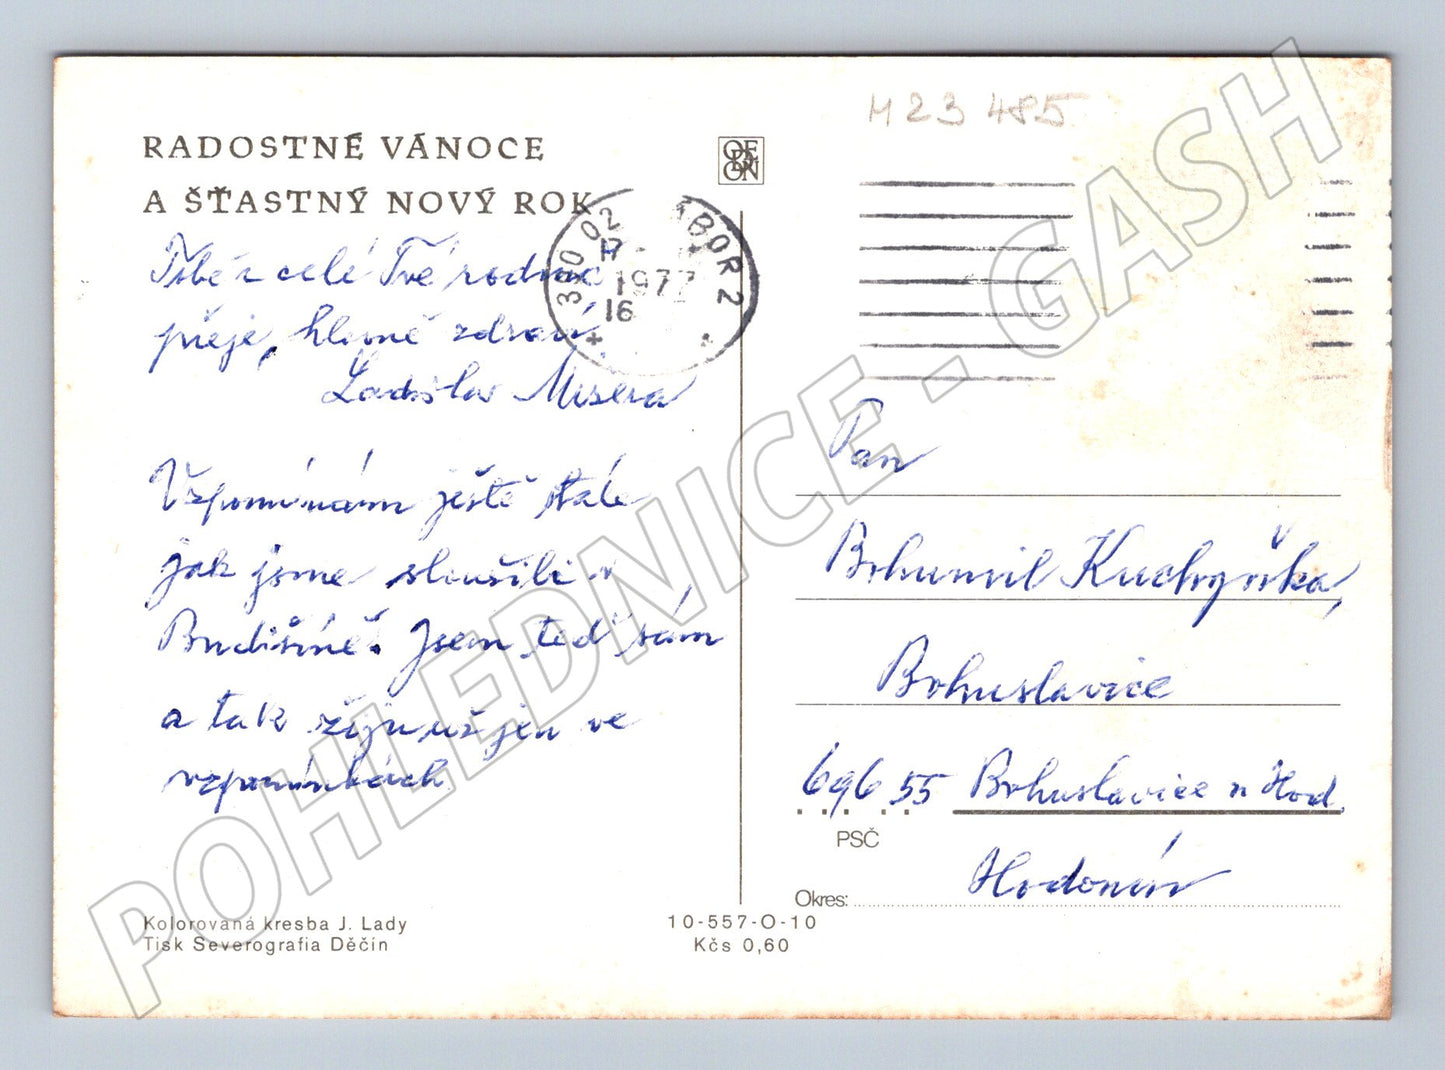 RADOSTNÉ VÁNOCE
A ŠŤASTNÝ NOVÝ ROK
Tobě a celé Tvé rodině
přeje, hlavně zdraví,
Ladislav Misera
Vzpomínám ještě stále
jak jsme sloužili v
Budišíně. Jsem teď sám
a tak žiju už jen ve
vzpomínkách
Kolorovaná kresba J. Lady
Tisk Severografia Děčín
10-557-O-10
Kčs 0,60
ODEON
390 02 TÁBOR 2
1977
16
M23 485
Pan
Bohumil Kuchyňka,
Bohuslavice
696 55 Bohuslavice u Hod.
PSČ
Hodonín
Okres:
POHLEDNICE - GASH